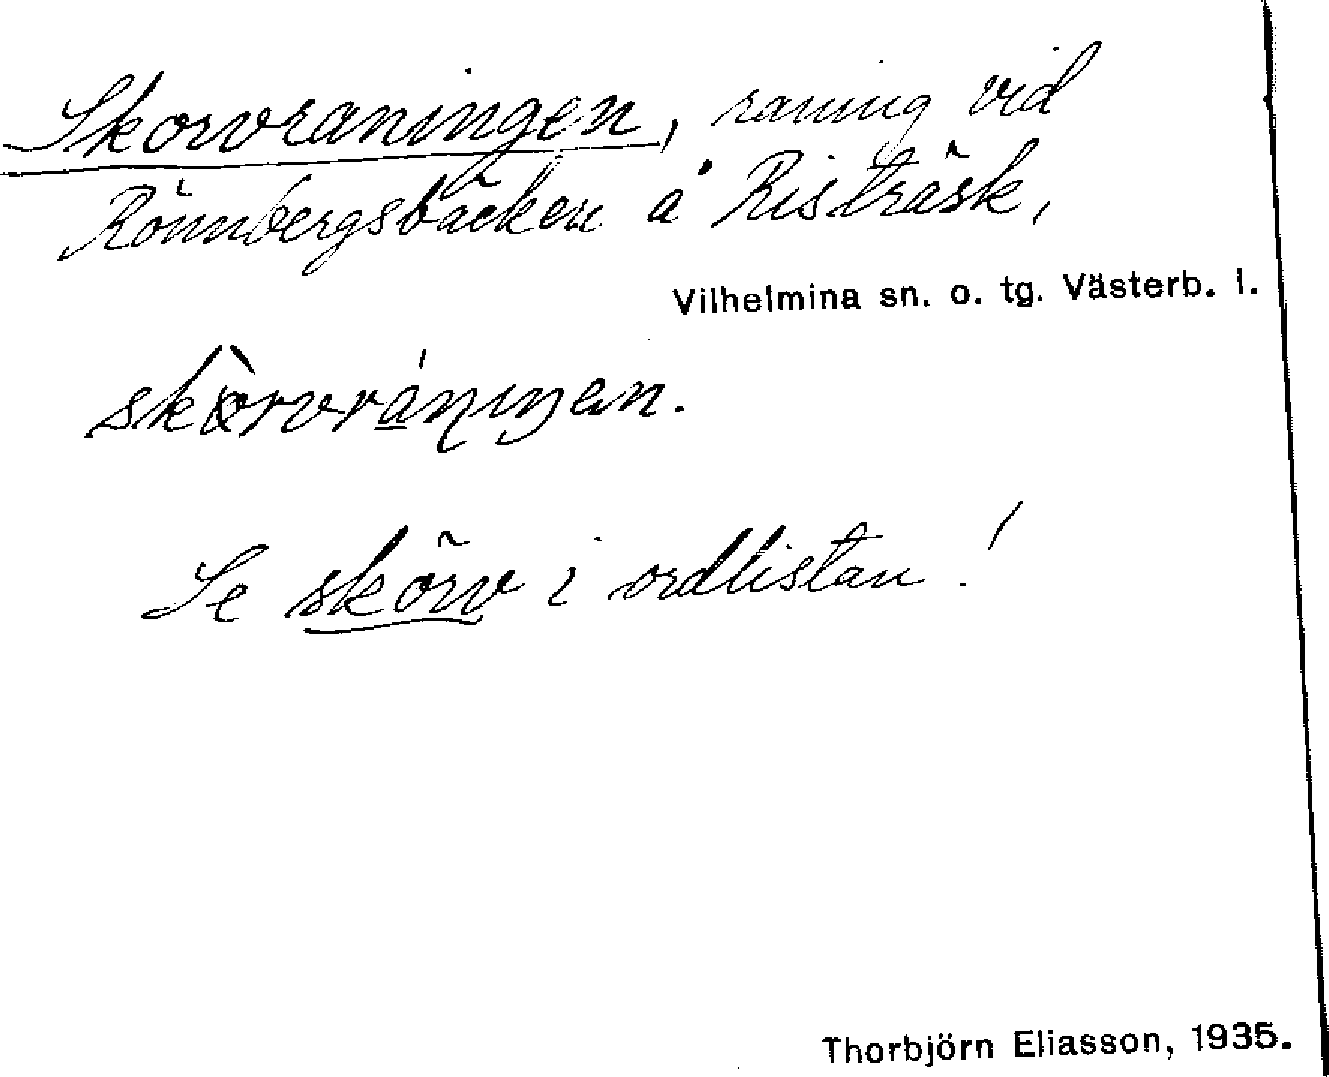 Skorvraningen, raning vid
Rönnbergsbäcken å Risträsk,
Vilhelmina sn. o. tg. Västerb. l.
Se skörv i ordlistan!
Thorbjörn Eliasson, 1935.